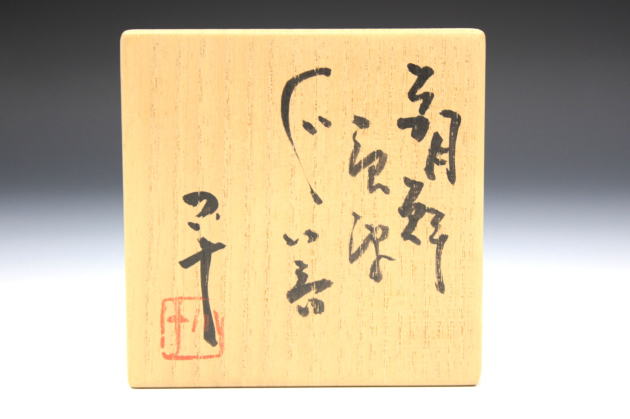 朝鮮
唐津
ぐい呑
小十
小十